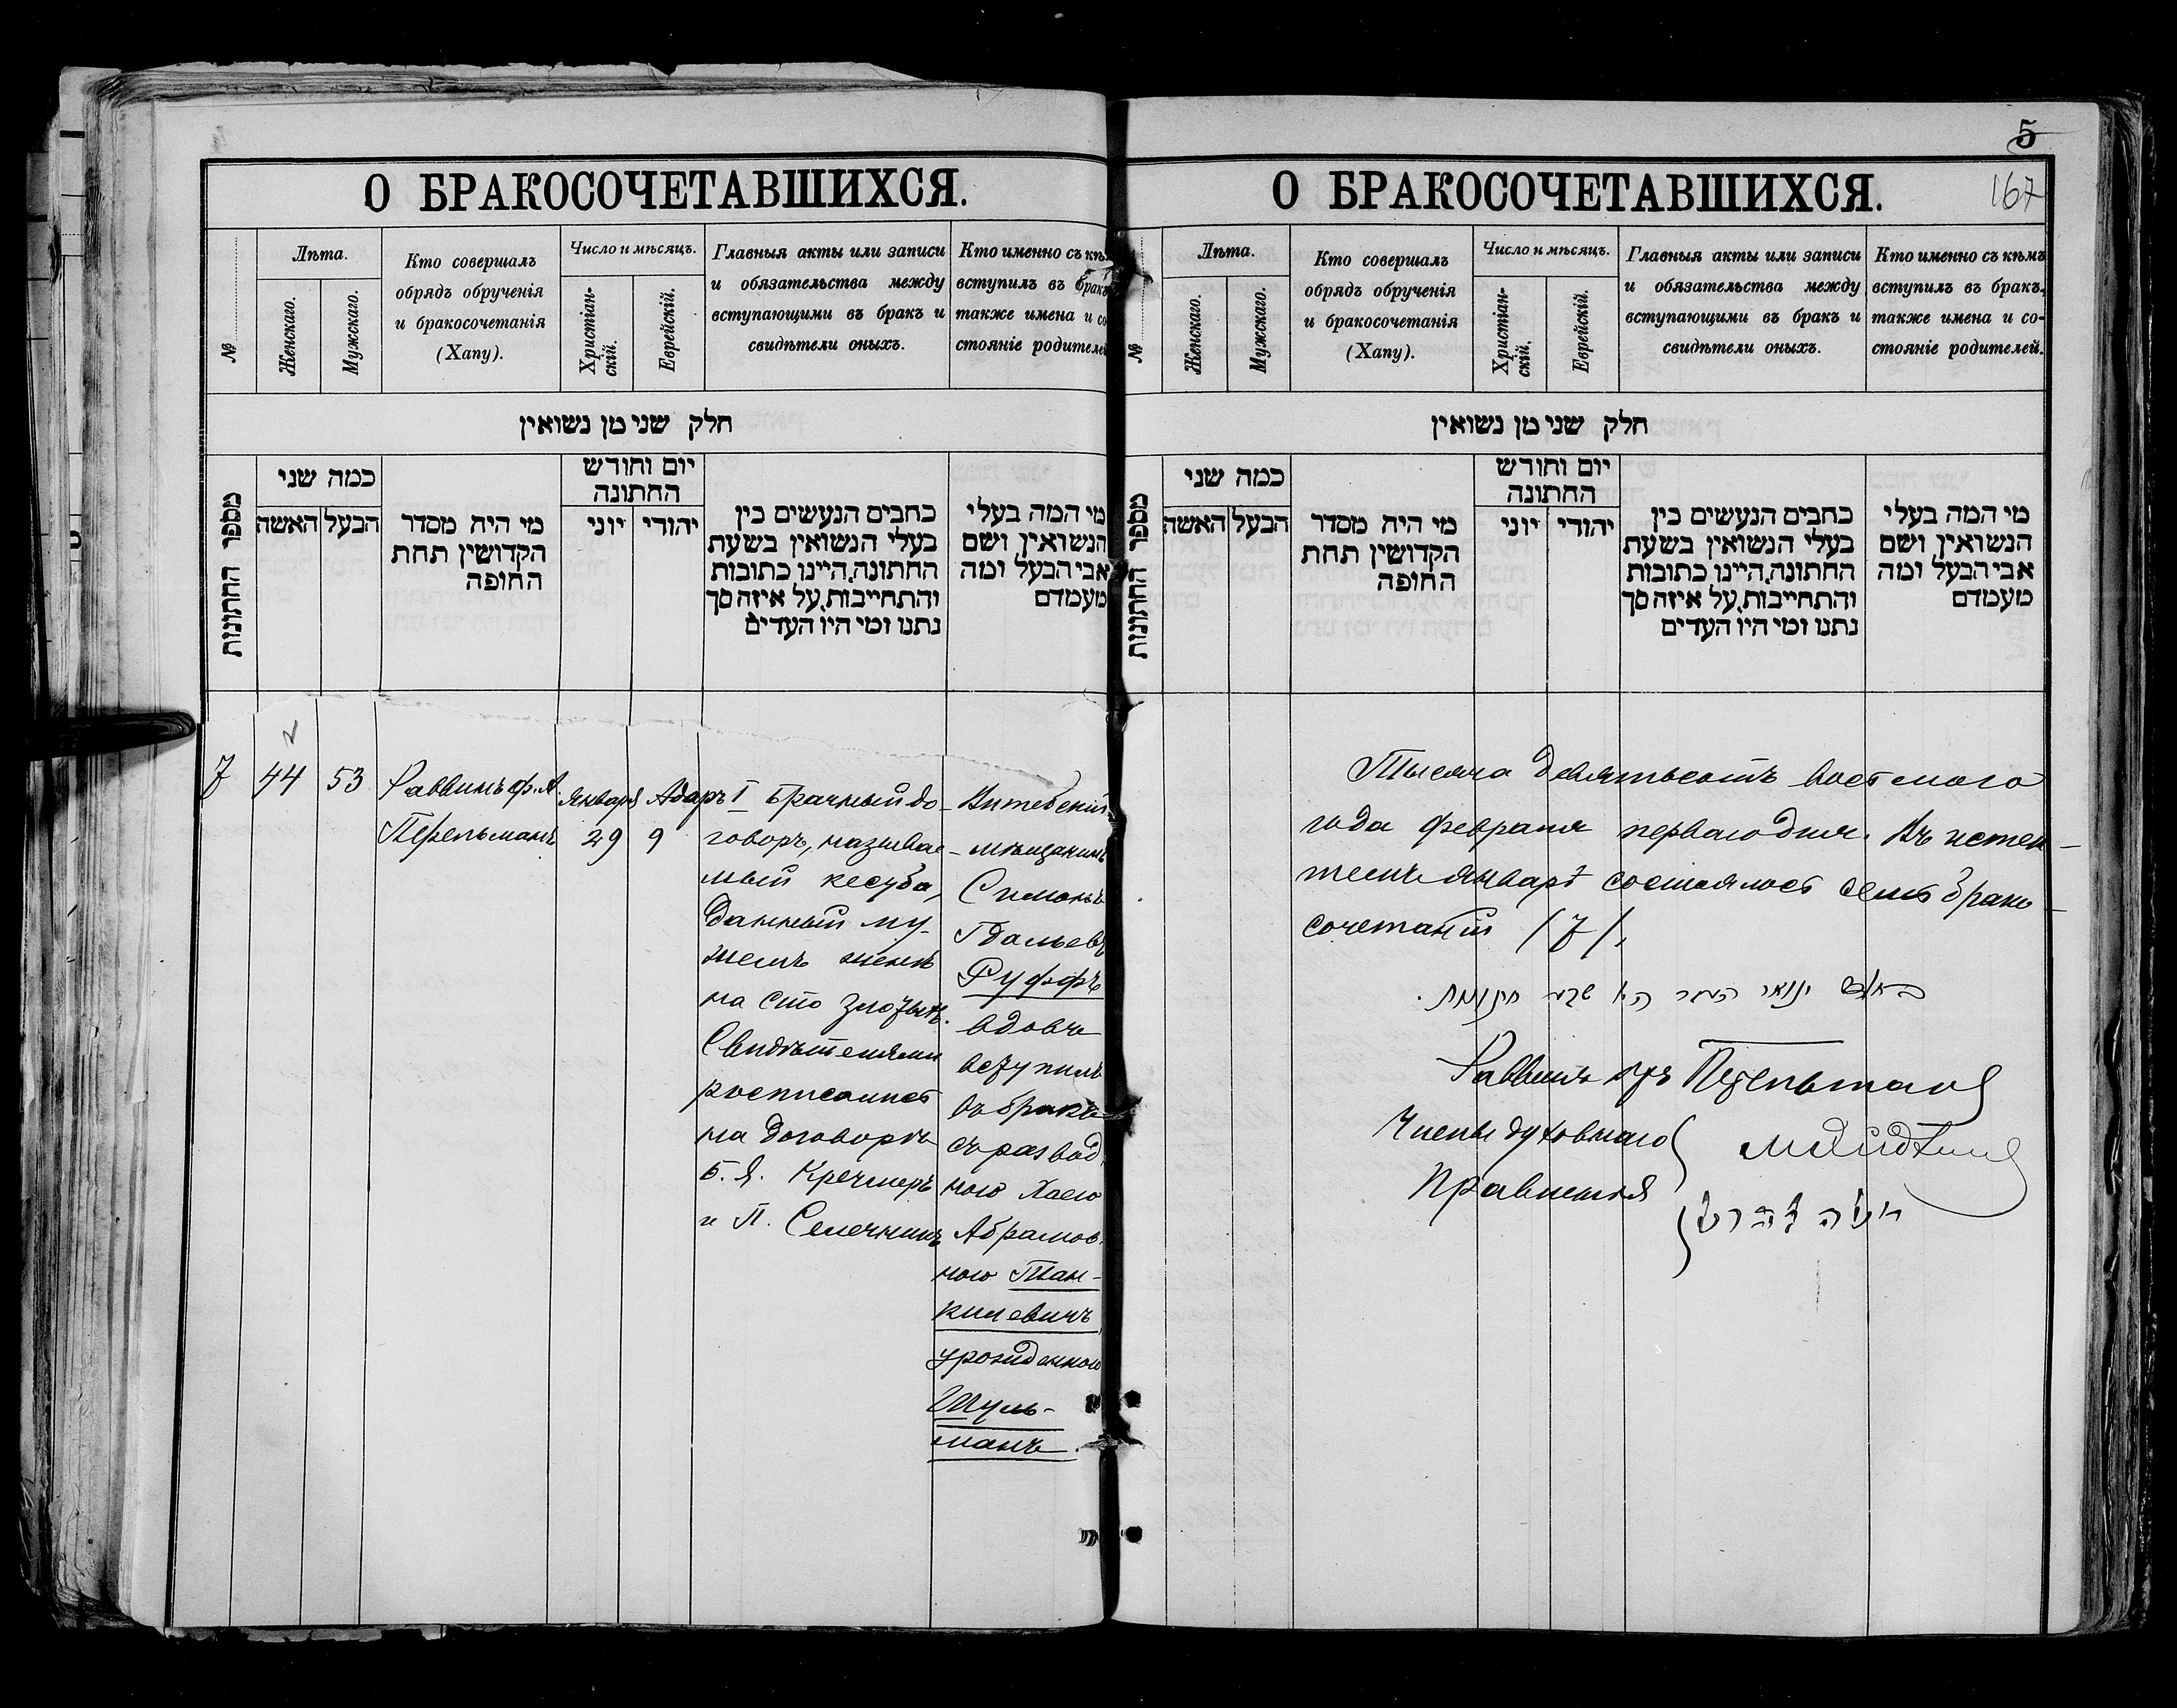 О БРАКОСОЧЕТАВШИХСЯ.
№
Лѣта.
Женскаго.
Мужскаго.
Кто совершалъ
обрядъ обрученія
и бракосочетанія
(Хапу).
Число и мѣсяцъ.
Христіан-
скій.
Еврейскій.
Главныя акты или записи
и обязательства между
вступающими въ бракъ и
свидѣтели оныхъ.
Кто именно съ кѣ
вступилъ въ бракъ
также имена и со
стояніе родителей
חלק שני מן נשואין
מספר החתונות
כמה שני
האשה
הבעל
מי היה מסדר
הקדושין תחת
החופה
יום וחודש
החתונה
יוני
יהודי
כתבים הנעשים בין
בעלי הנשואין בשעת
החתונה, היינו כתובות
והתחייבות, על איזה סך
נתנו ומי היו העדים
מי המה בעלי
הנשואין ושם
אבי הבעל ומה
מעמדם
7
44
53
Раввинъ ф. А.
Перельманъ
Января
29
Адаръ I
9
Брачный до-
говоръ, называе-
мый кесуба,
данный му-
жемъ женѣ
на сто злотыхъ.
Свидѣтелями
росписались
на договорѣ
Б. Я. Кречмеръ
и П. Селечникъ
Витебскій
мѣщанинъ
Симонъ
Гдальевъ
Руффъ
вдовъ
вступилъ
въ бракъ
съ развед
ною Хаею
Абрамов
ною Тан-
килевичъ
урожденною
Шуль-
манъ.
5
О БРАКОСОЧЕТАВШИХСЯ.
167
№
Лѣта.
Женскаго.
Мужскаго.
Кто совершалъ
обрядъ обрученія
и бракосочетанія
(Хапу).
Число и мѣсяцъ.
Христіан-
скій.
Еврейскій.
Главныя акты или записи
и обязательства между
вступающими въ бракъ и
свидѣтели оныхъ.
Кто именно съ кѣмъ
вступилъ въ бракъ,
также имена и со-
стояніе родителей.
חלק שני מן נשואין
מספר החתונות
כמה שני
האשה
הבעל
מי היה מסדר
הקדושין תחת
החופה
יום וחודש
החתונה
יוני
יהודי
כתבים הנעשים בין
בעלי הנשואין בשעת
החתונה, היינו כתובות
והתחייבות, על איזה סך
נתנו ומי היו העדים
מי המה בעלי
הנשואין ושם
אבי הבעל ומה
מעמדם
Тысяча девятьсотъ восьмого
года февраля перваго дня. Въ истек-
шемъ январѣ состоялось семь брако-
сочетаній /7/.
בחודש ינואר העבר היו שבע חתונות.
Раввинъ Перельманъ
Члены духовнаго
Правленія